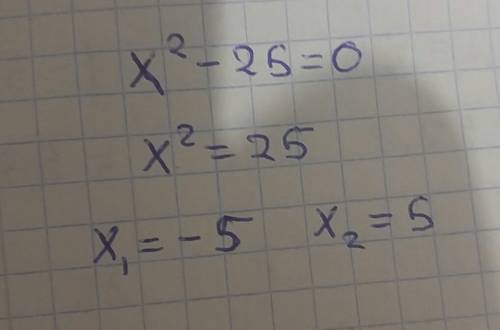 x² - 25 = 0
x² = 25
x₁ = - 5 x₂ = 5